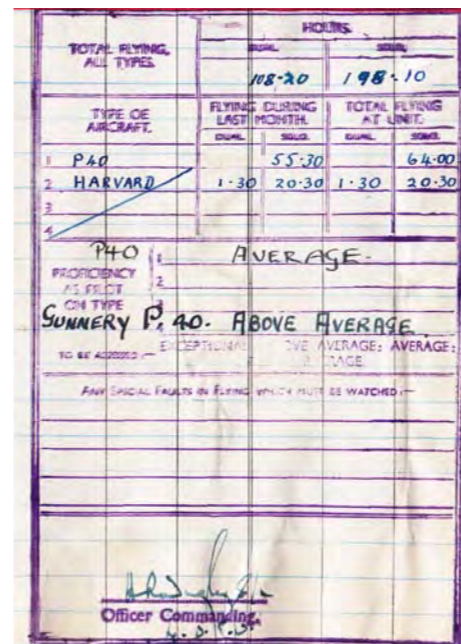 HOURS.
TOTAL FLYING, ALL TYPES.
DUAL. SOLO.
108·20 198·10
TYPE OF AIRCRAFT.
FLYING DURING LAST MONTH. TOTAL FLYING AT UNIT.
DUAL. SOLO. DUAL. SOLO.
1 P40 55·30 64·00
2 HARVARD 1·30 20·30 1·30 20·30
3
4
P40 1. AVERAGE.
PROFICIENCY AS PILOT ON TYPE
2
GUNNERY P. 40. ABOVE AVERAGE.
TO BE ASSESSED:— EXCEPTIONAL AVERAGE: AVERAGE:
ANY SPECIAL FAULTS IN FLYING WHICH MUST BE WATCHED:—
Officer Commanding,